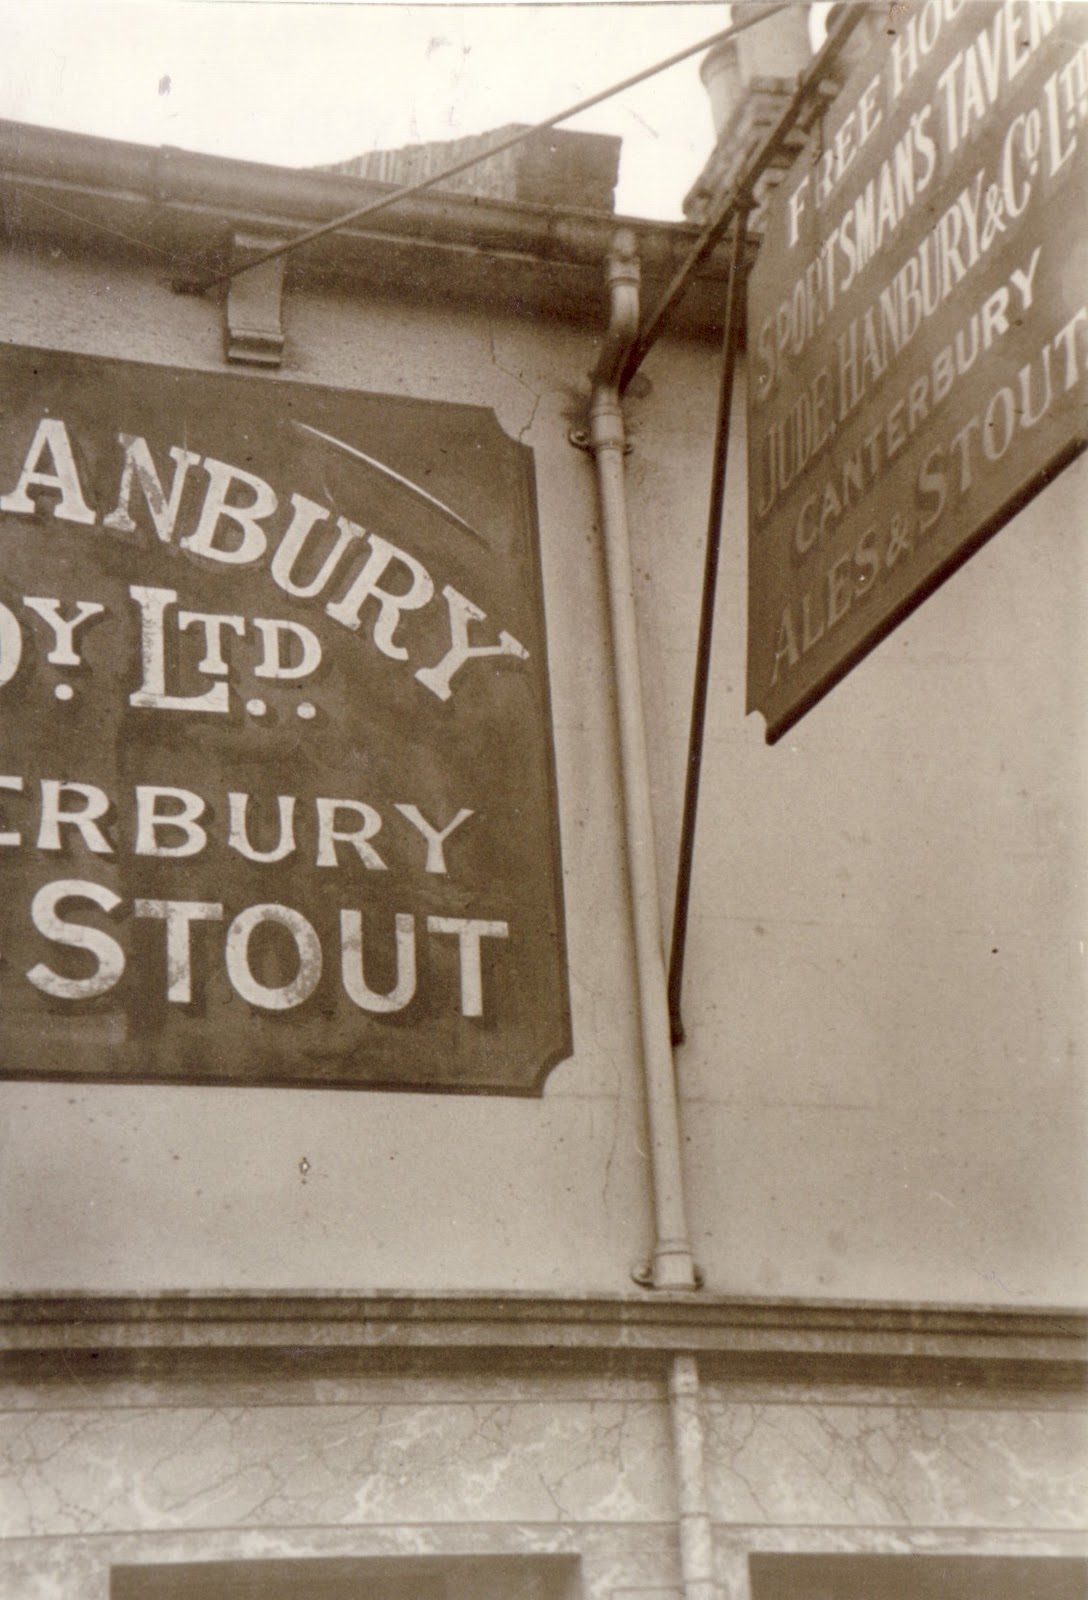 ANBURY
OY. LTD.
ERBURY
STOUT
FREE HOU
SPORTSMAN'S TAVERN
JUDE, HANBURY & Co. LTD
CANTERBURY
ALES & STOUT